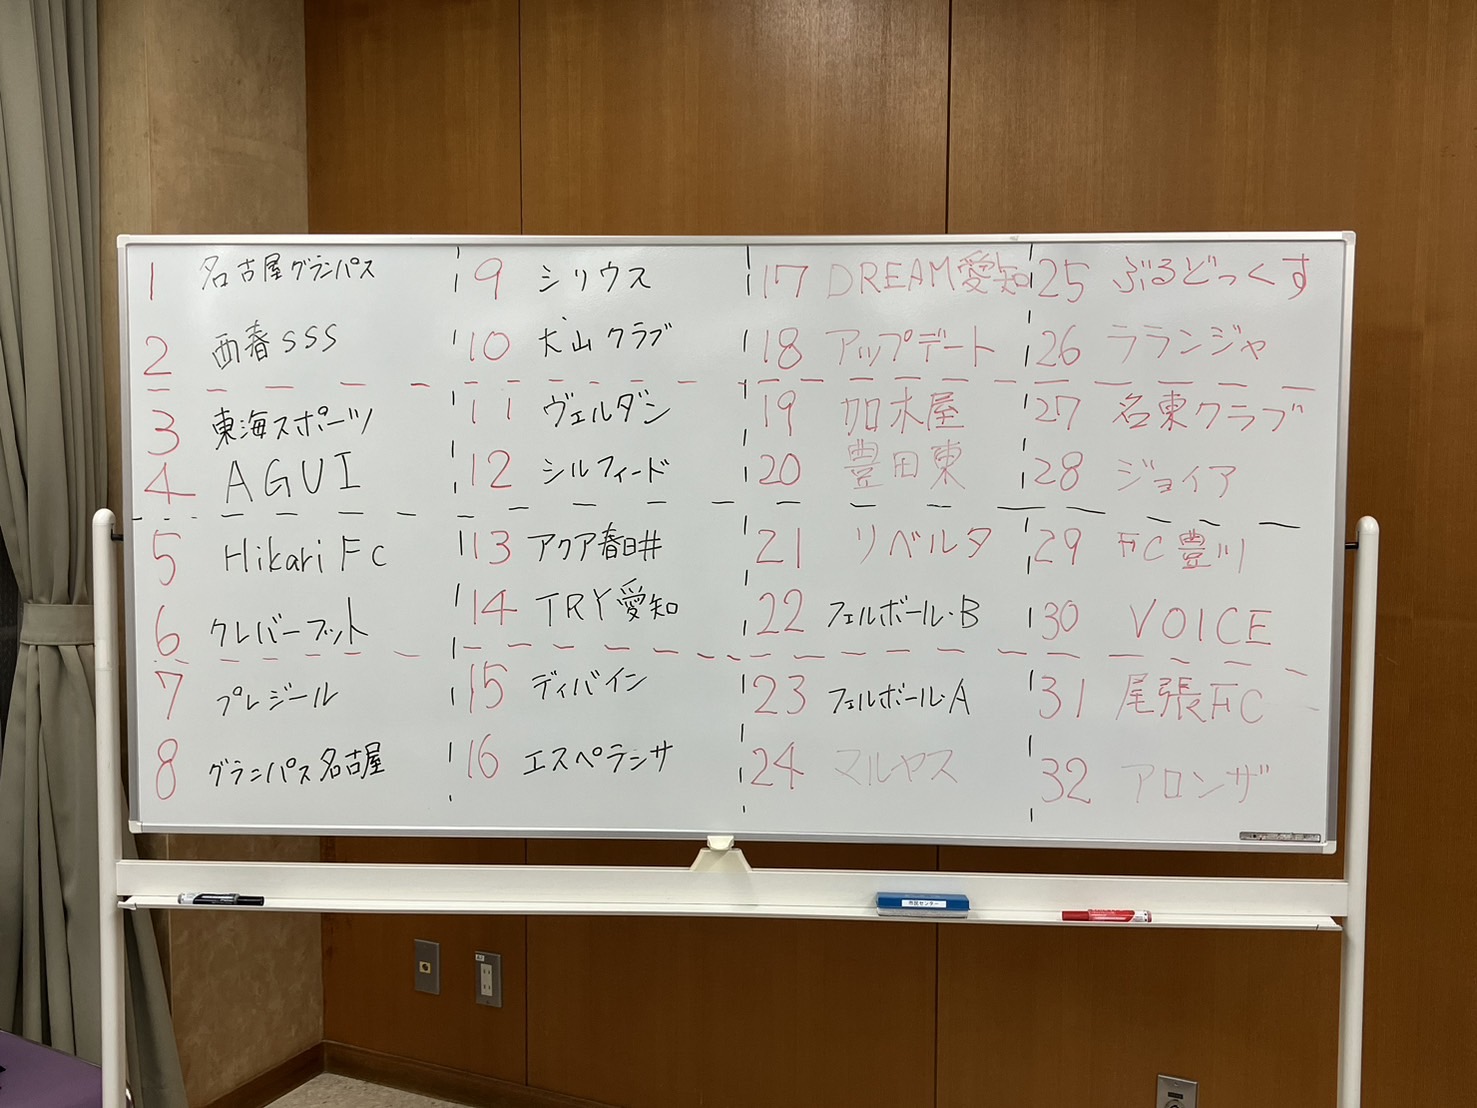 1 名古屋グランパス
2 西春SSS
3 東海スポーツ
4 AGUI
5 Hikari FC
6 クレバーフット
7 プレジール
8 グランパス名古屋
9 シリウス
10 犬山クラブ
11 ヴェルダン
12 シルフィード
13 アクア春日井
14 TRY愛知
15 ディバイン
16 エスペランサ
17 DREAM愛知
18 アップデート
19 加木屋
20 豊田東
21 リベルタ
22 フェルボール・B
23 フェルボール・A
24 マルヤス
25 ぶるどっくす
26 ラランジャ
27 名東クラブ
28 ジョイア
29 FC豊川
30 VOICE
31 尾張FC
32 アロンザ
市民センター